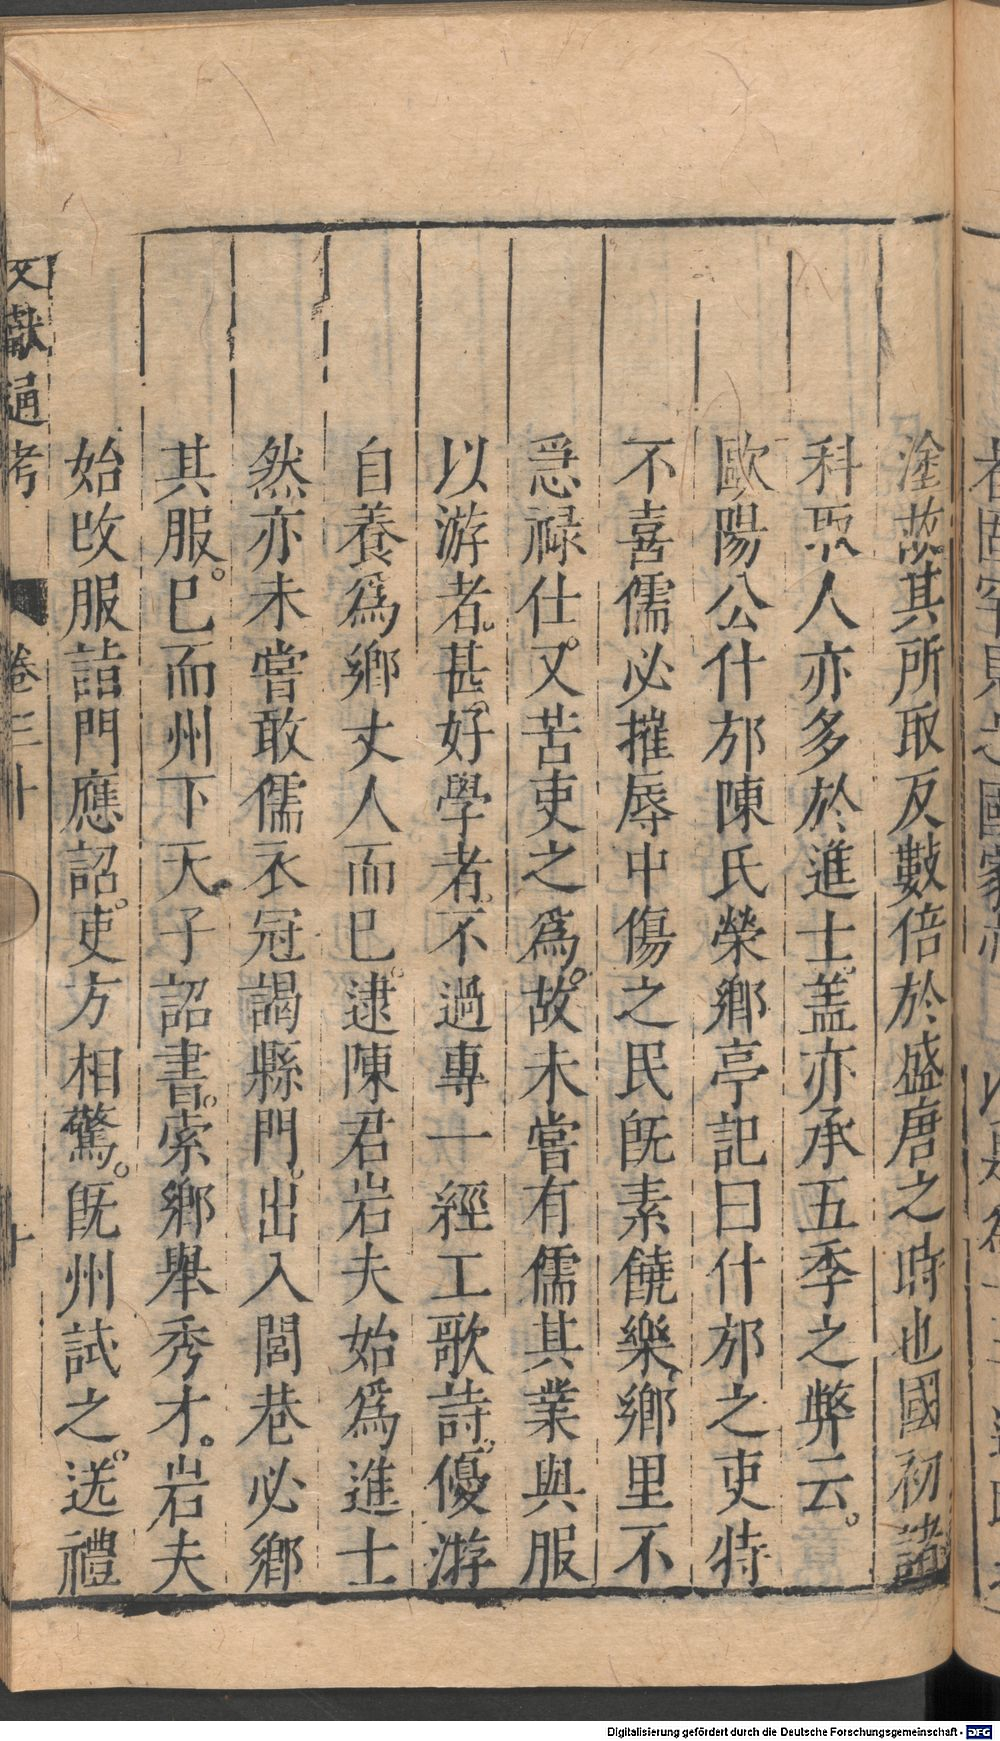 塗故其所取反數倍於盛唐之時也國初諸
科取人亦多於進士蓋亦承五季之弊云。
歐陽公什邡陳氏榮鄉亭記曰什邡之吏特
不喜儒必摧辱中傷之民旣素饒樂鄉里不
急祿仕。又苦吏之爲。故未嘗有儒其業與服
以游者。甚好學者。不過專一經工歌詩。優游
自養爲鄉丈人而已。逮陳君岩夫始爲進士
然亦未嘗敢儒衣冠謁縣門。出入閭巷必鄉
其服。已而州下天子詔書。索鄉舉秀才。岩夫
始改服詣門應詔。吏方相驚。旣州試之。送禮
文獻通考 卷三十 十
Digitalisierung gefördert durch die Deutsche Forschungsgemeinschaft - DFG